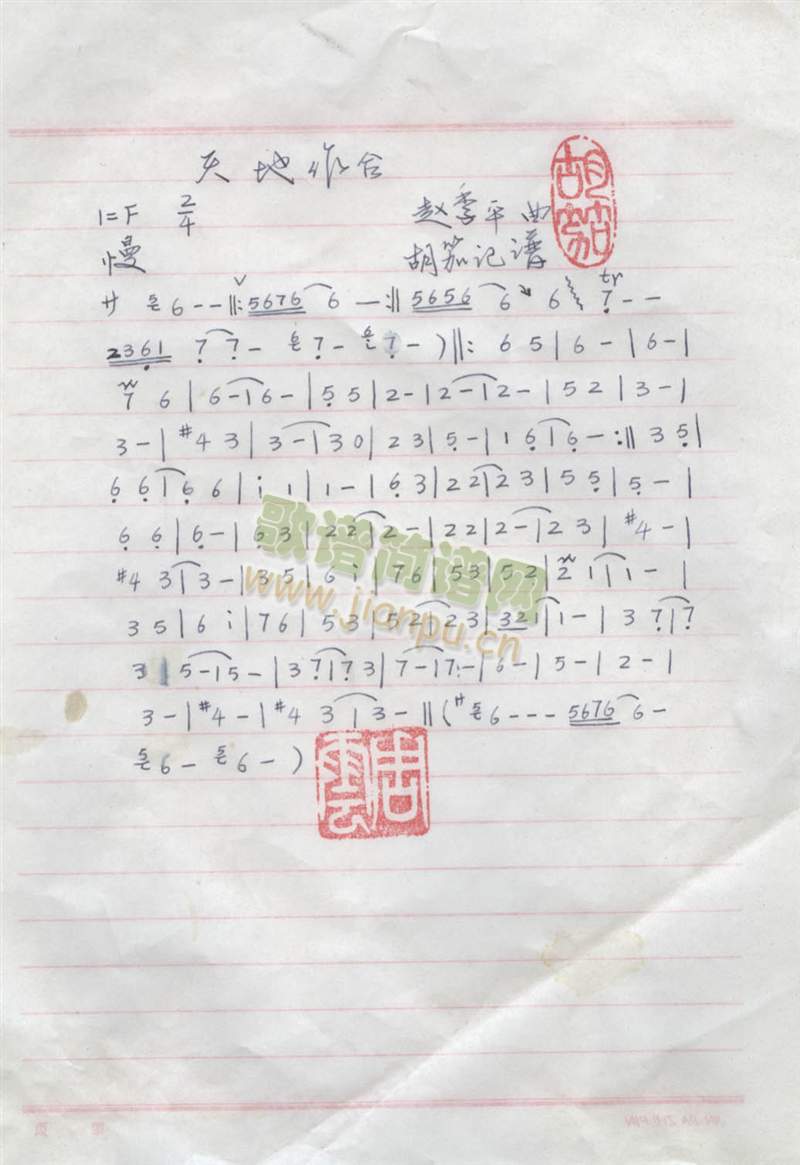 天地作合
1=F 2/4 赵季平 曲
慢 胡笳记谱
胡笳
サ 5 6 - - ‖: 5676 6 — :‖ 5656 6 6 tr 7 - -
2361 7 7 - 6 7 - 6 7 - ) ‖: 6 5 | 6 - | 6 - |
7 6 | 6 - | 6 - | 5 5 | 2 - | 2 - | 2 - | 5 2 | 3 - |
3 - | #4 3 | 3 - | 3 0 | 2 3 | 5 - | 1 6 | 6 - :‖ 3 5 |
6 6 | 6 6 | i 1 | 1 - | 6 3 | 2 2 | 2 3 | 5 5 | 5 - |
6 6 | 6 - | 6 3 | 2 2 | 2 - | 2 2 | 2 - | 2 3 | #4 - |
#4 3 | 3 - | 3 5 | 6 i | 7 6 | 5 3 | 5 2 | 2 1 | 1 - |
3 5 | 6 i | 7 6 | 5 3 | 5 2 | 2 3 | 3 2 1 | 1 - | 3 7 | 7
3 | 5 - | 5 - | 3 7 | 7 3 | 7 - | 7 - | 6 - | 5 - | 2 - |
3 - | #4 - | #4 3 | 3 - ‖ ( サ 5 6 - - - 5676 6 -
5 6 - 5 6 - )
歌谱简谱网
www.jianpu.cn